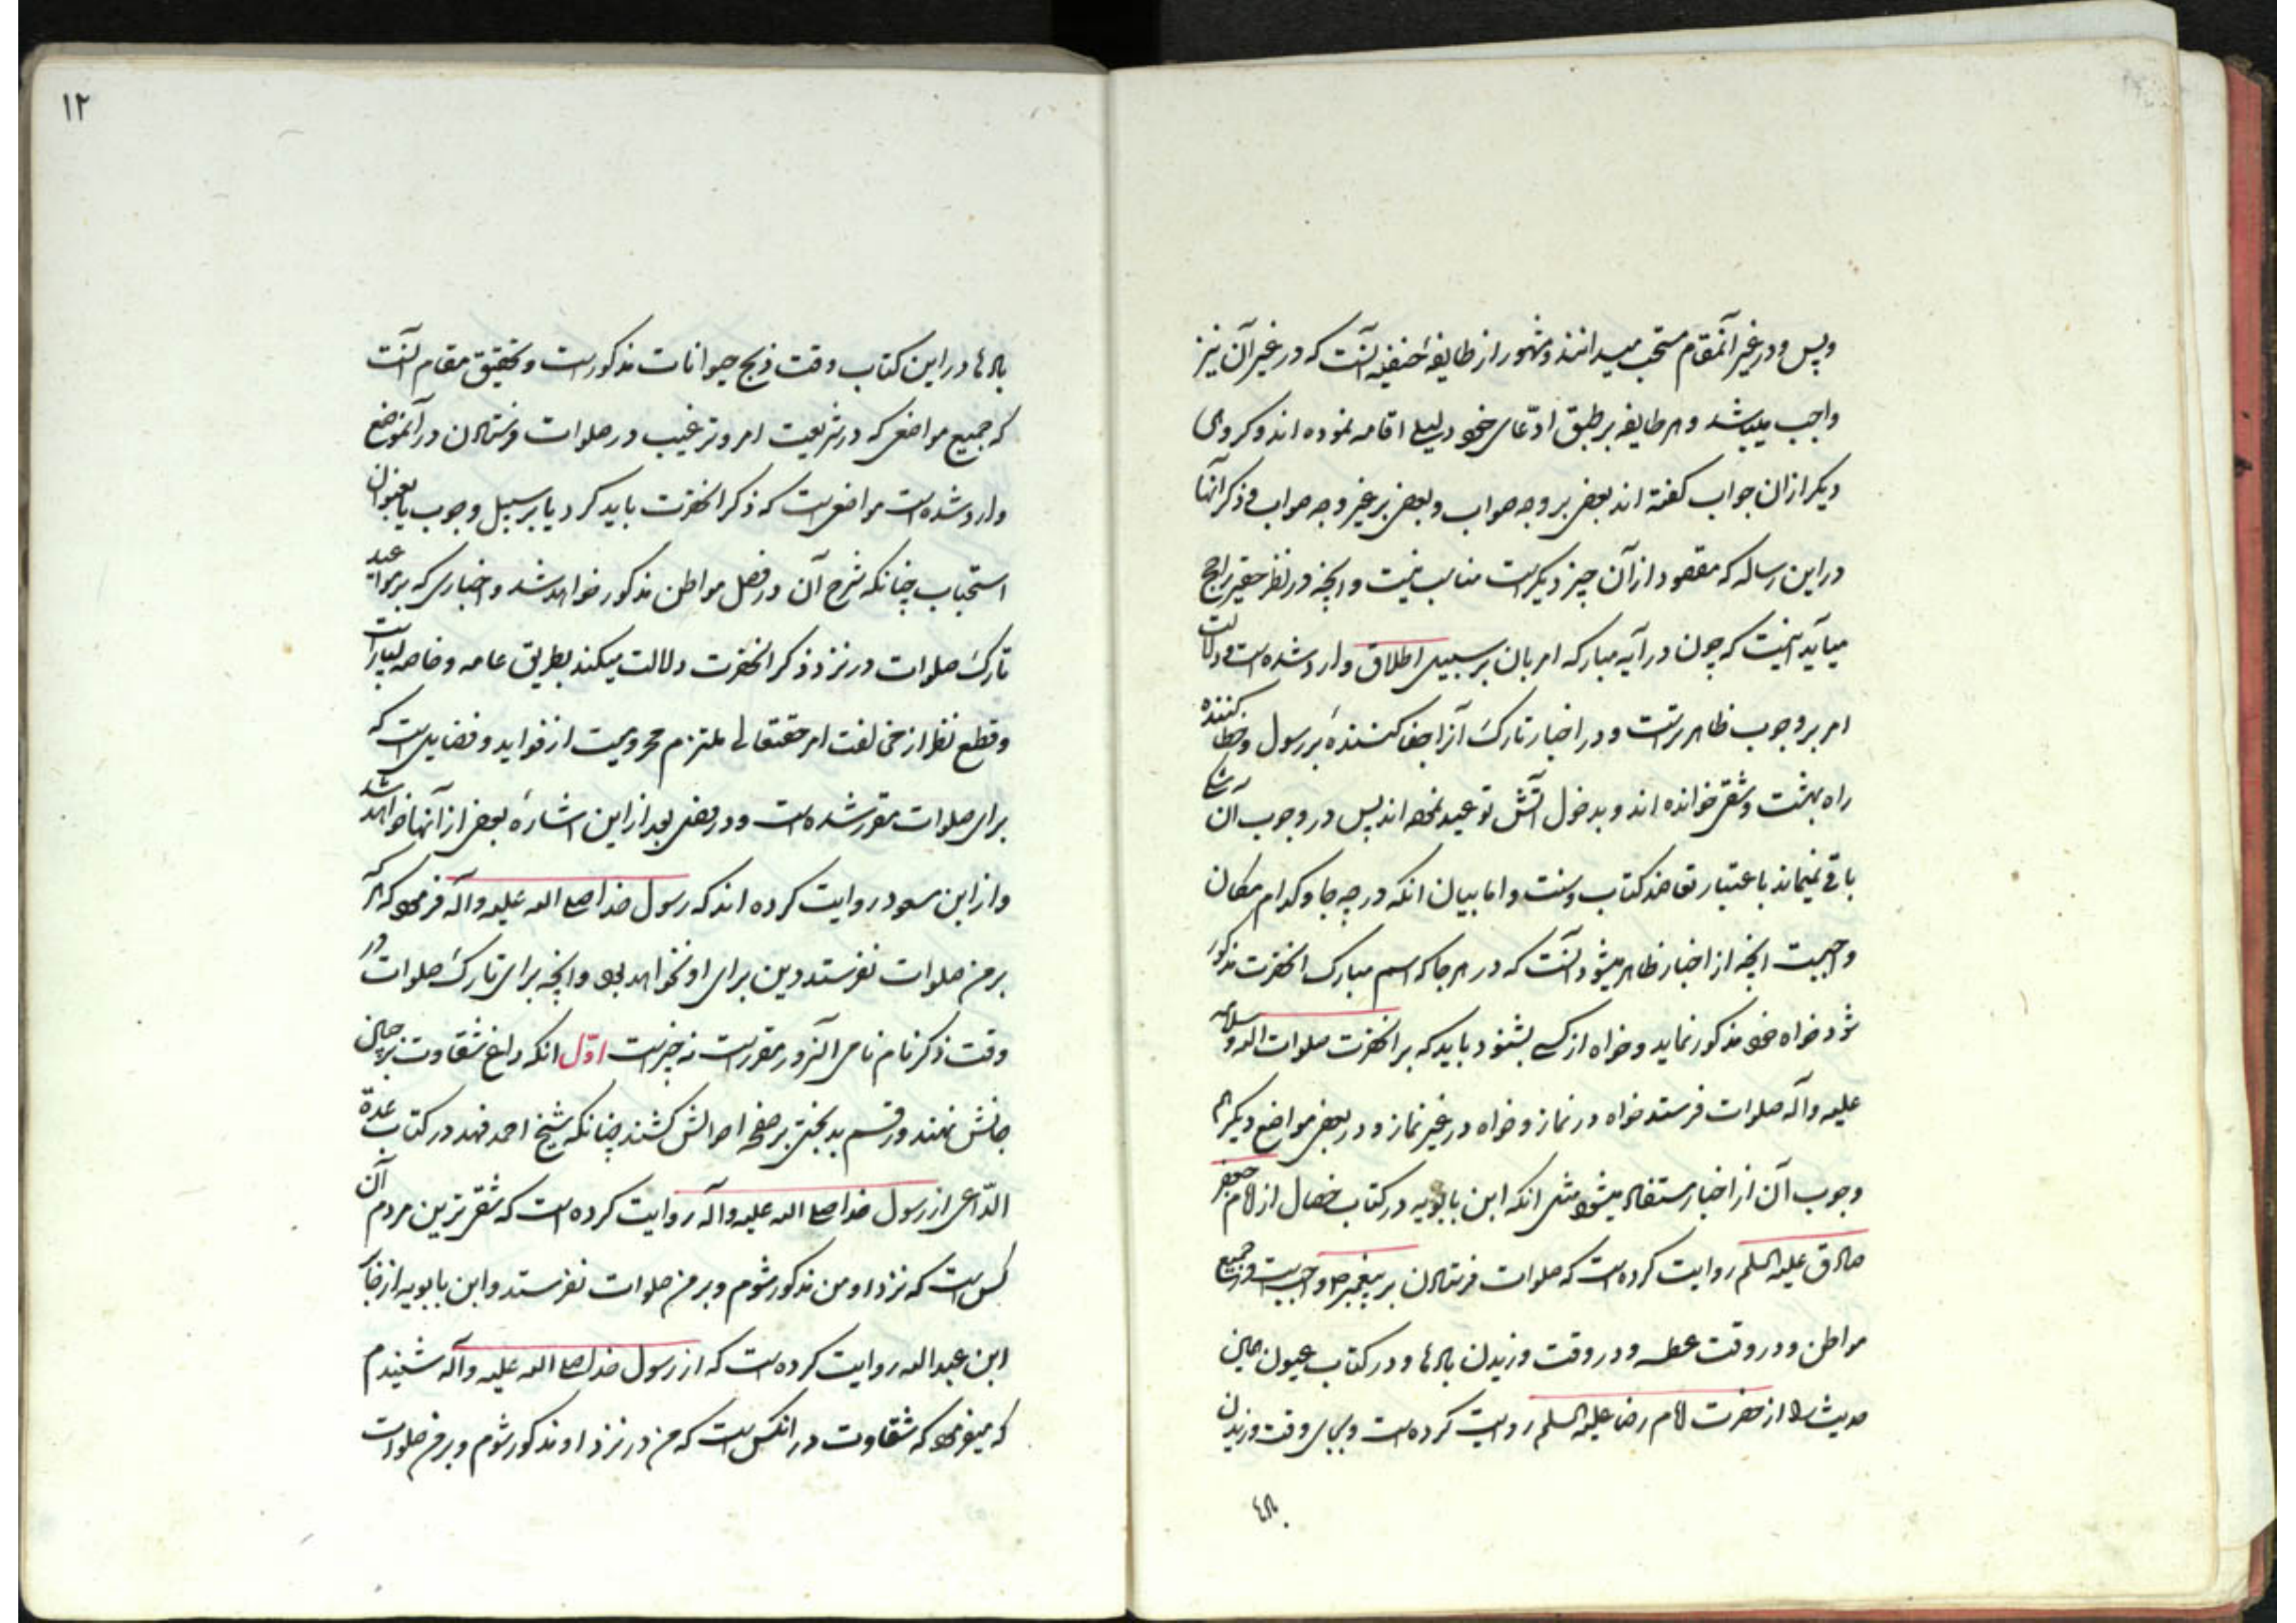 وپس و در غیر آنمقام مستحب میدانند و مشهور از طایفۀ حنفیه آنست که در غیر آن نیز
واجب میباشد و هر طایفه بر طبق ادّعای خود دلیلی اقامه نموده اند و کروهی
دیکر از ان جواب کفته اند بعضی بر وجه صواب و بعضی بر غیر وجه صواب و ذکر آنها
در این رساله که مقصود از آن چیز دیکریست مناسب نیست و انچه در نظر حقیر راجح
میآید اینست که چون در آیه مبارکه امر بان بر سبیل اطلاق وارد شده است و دلالت
امر بر وجوب ظاهر تر است و در اخبار تارک آنرا جفا کننده بر رسول و خطا کننده
راه بهشت و شقی خوانده اند و بدخول آتش توعید نموده اند پس در وجوب آن شکی
باقی نمیماند باعتبار تعاضد کتاب و سنت و اما بیان انکه در چه جا و کدام مکان
واجبست انچه از اخبار ظاهر میشود آنست که در هر جا که اسم مبارک انحضرت مذکور
شود خواه خود مذکور نماید و خواه از کسی بشنود باید که بر انحضرت صلوات الله و سلامه
علیه و آله صلوات فرستد خواه در نماز و خواه در غیر نماز و در بعضی مواضع دیکر هم
وجوب آن از اخبار مستفاد میشود مثل انکه ابن بابویه در کتاب خصال از امام جعفر
صادق علیه السلم روایت کرده است که صلوات فرستادن بر پیغمبر ص واجبست در جمیع
مواطن و در وقت عطسه و در وقت وزیدن بادها و در کتاب عیون همین
حدیث را از حضرت امام رضا علیه السلم روایت کرده است و بجای وقت وزیدن
بادها
۱۲
بادها در این کتاب وقت ذبح حیوانات مذکور است و تحقیق مقام آنست
که جمیع مواضعی که در شریعت امر و ترغیب در صلوات فرستادن در آنموضع
وارد شده است مواضعی است که ذکر انحضرت باید کرد یا بر سبیل وجوب یا بعنوان
استحباب چنانکه شرح آن در فصل مواطن مذکور خواهد شد و اخباری که بر مواعید
تارک صلوات در نزد ذکر انحضرت دلالت میکند بطریق عامه و خاصه بسیار است
و قطع نظر از مخالفت امر حقتعالی ملتزم محرومیت از فواید و فضایلی است که
برای صلوات مقرر شده است و در فصل بعد از این اشارۀ بعضی از آنها خواهد شد
و از ابن مسعود روایت کرده اند که رسول خدا صلی الله علیه و آله فرمود که هر که
بر من صلوات نفرستد دین برای او نخواهد بود و انچه برای تارک صلوات در
وقت ذکر نام نامی آنسرور مقرر است نه چیز است اوّل انکه داغ شقاوت بر جبین
جانش نهند و رقم بدبختی بر صفحه احوالش کشند چنانکه شیخ احمد فهد در کتاب عدة
الدّاعی از رسول خدا صلی الله علیه و آله روایت کرده است که شقی ترین مردم آن
کس است که نزد او من مذکور شوم و بر من صلوات نفرستد و ابن بابویه از جابر
ابن عبد الله روایت کرده است که از رسول خدا صلی الله علیه و آله شنیدم
که میفرمود که شقاوت در انکس است که من در نزد او مذکور شوم و بر من صلوات